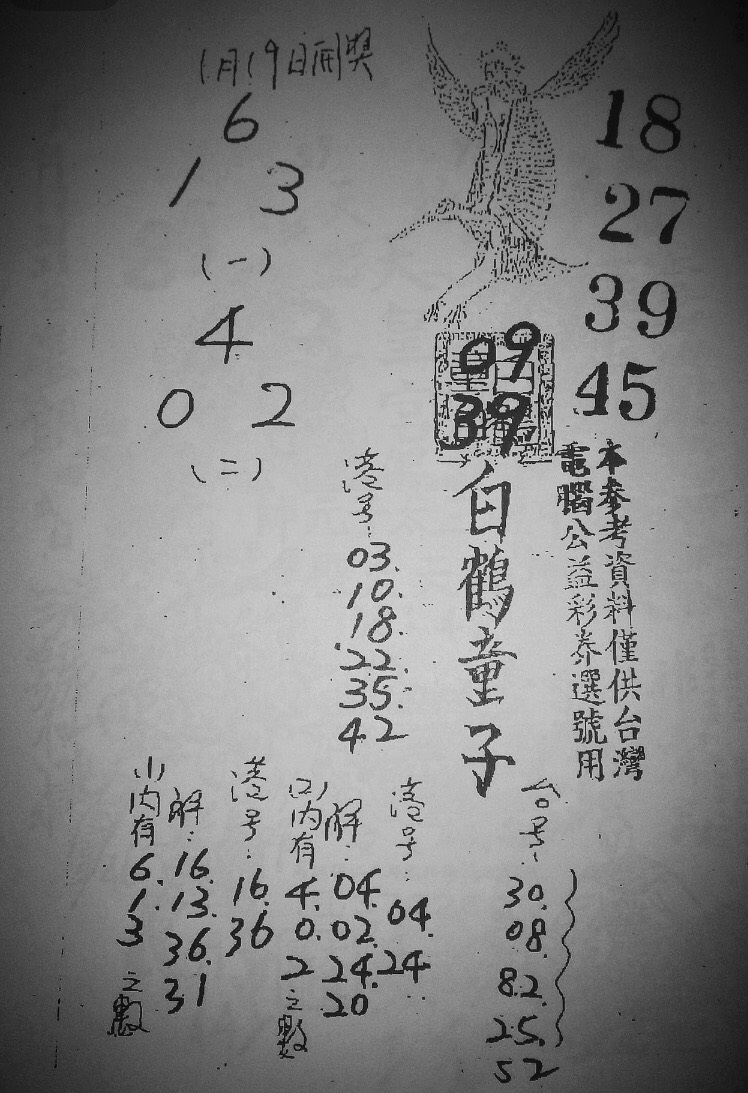 1月19日開獎
6
1 3
(一)
4
0 2
(二)
18
27
39
45
09
39
本參考資料僅供台灣
電腦公益彩券選號用
白鶴童子
港号:
03.
10.
18.
22.
35.
42
台号:
30.
08.
82.
25.
52
港号:
04.
24
解:
04.
02.
24.
20
(二)内有
4.
0.
2
之數
港号:
16.
36
解:
16.
13.
36.
31
(一)内有
6.
1.
3
之數